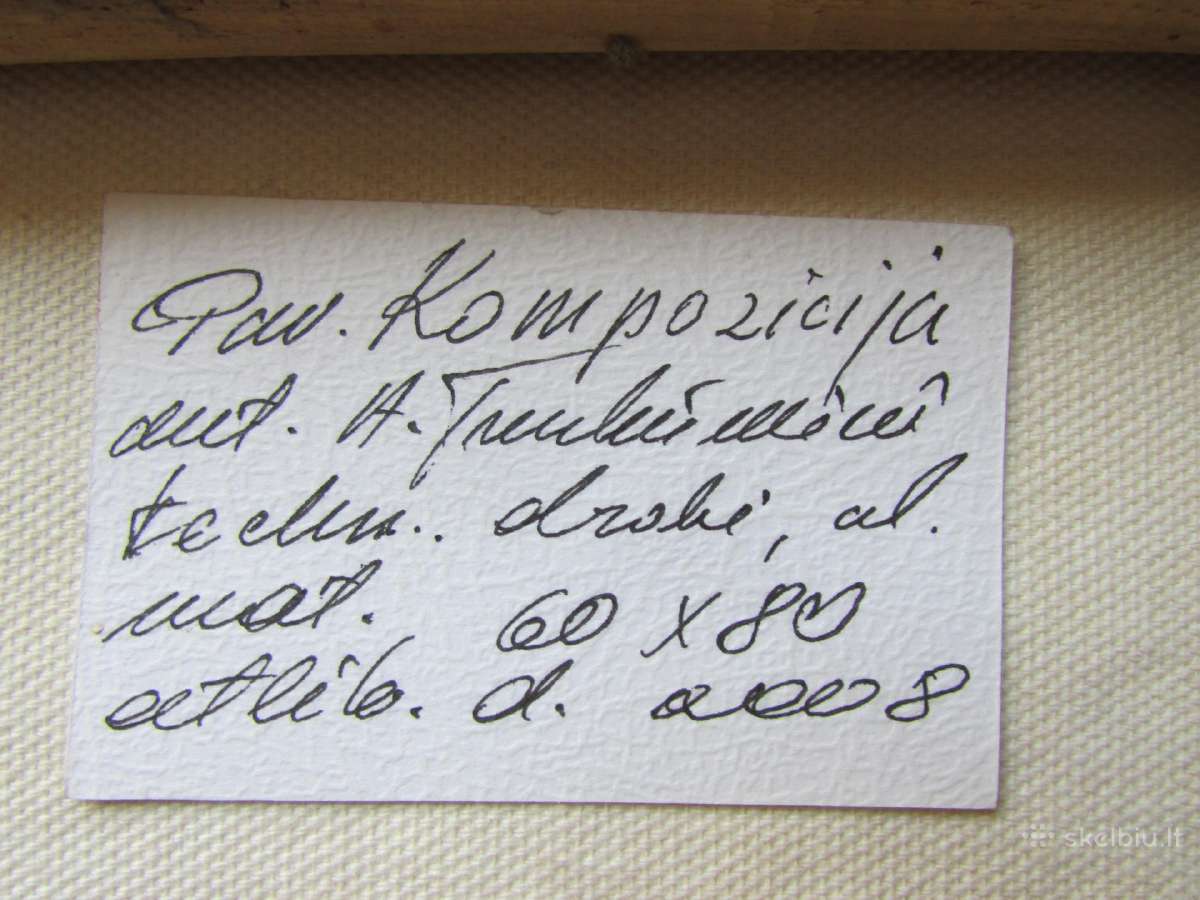 Pav. Kompozicija
aut. A.
techn.. drobė, al.
mat. 60 x 80
atlik. d. 2008
skelbiu.lt